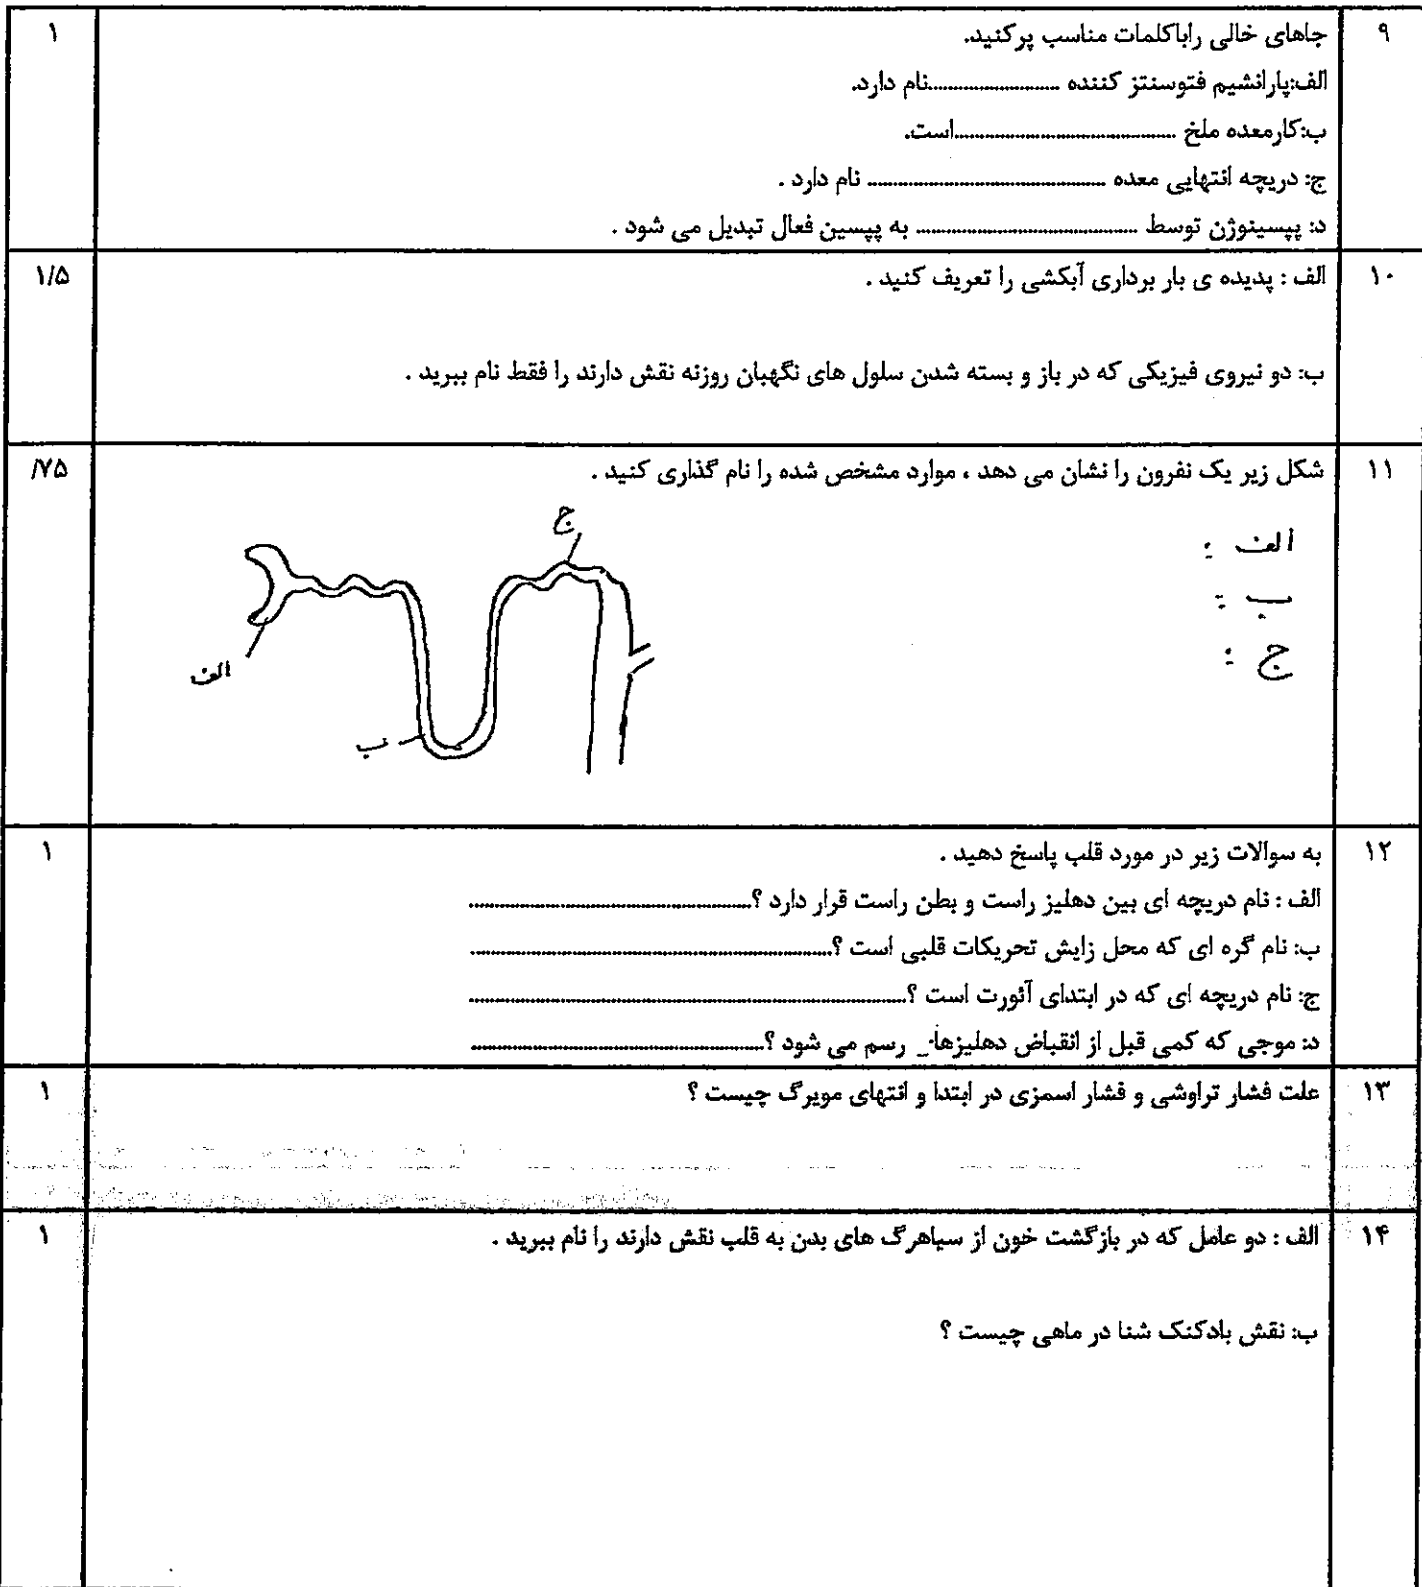 ۹
جاهای خالی راباکلمات مناسب پرکنید.
۱
الف:پارانشیم فتوسنتز کننده ........................نام دارد.
ب:کارمعده ملخ ........................است.
ج: دریچه انتهایی معده ........................ نام دارد .
د: پپسینوژن توسط ........................ به پپسین فعال تبدیل می شود .
۱۰
الف : پدیده ی بار برداری آبکشی را تعریف کنید .
۱/۵
ب: دو نیروی فیزیکی که در باز و بسته شدن سلول های نگهبان روزنه نقش دارند را فقط نام ببرید .
۱۱
شکل زیر یک نفرون را نشان می دهد ، موارد مشخص شده را نام گذاری کنید .
/۷۵
ج
الف :
ب :
ج :
الف
ب
۱۲
به سوالات زیر در مورد قلب پاسخ دهید .
۱
الف : نام دریچه ای بین دهلیز راست و بطن راست قرار دارد ؟........................
ب: نام گره ای که محل زایش تحریکات قلبی است ؟........................
ج: نام دریچه ای که در ابتدای آئورت است ؟........................
د: موجی که کمی قبل از انقباض دهلیزها_ رسم می شود ؟........................
۱۳
علت فشار تراوشی و فشار اسمزی در ابتدا و انتهای مویرگ چیست ؟
۱
۱۴
الف : دو عامل که در بازگشت خون از سیاهرگ های بدن به قلب نقش دارند را نام ببرید .
۱
ب: نقش بادکنک شنا در ماهی چیست ؟